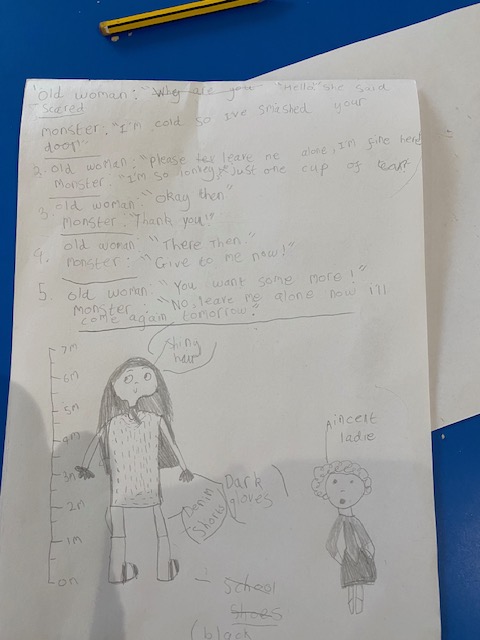 old woman: "~~Why are you~~ "Hello" she said
scared
monster: "I'm cold so I've smashed your
door"
2. old woman: "please leave me alone, I'm fine here
Monster: "I'm so just one cup of
3. old woman: "okay then"
Monster: "Thank you!"
4. old woman: "There Then."
Monster: "Give to me now!"
5. old woman "You want some more!"
Monster: "No, leave me alone now ill
come again tomorrow."
7m
6m
5m
4m
3m
2m
1m
0m
hair
Denim
Shorts
Dark
gloves
Aincent
ladie
~~School~~
~~Shoes~~
(black